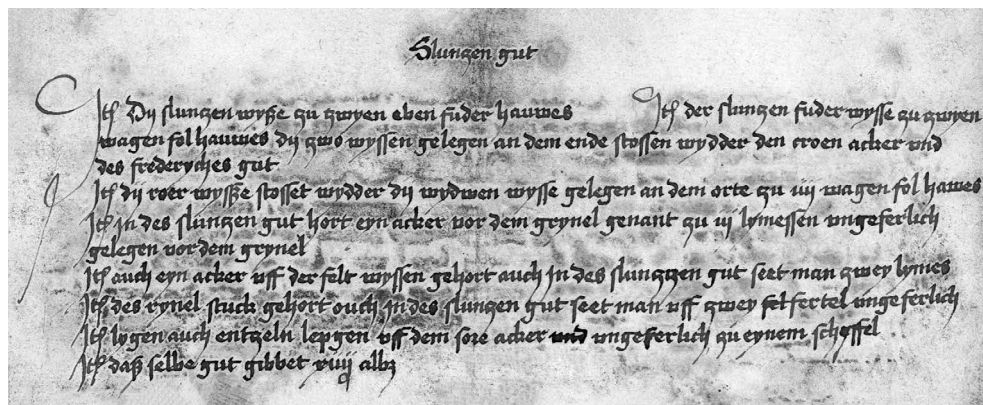 Slunzen gut
Jtem Dy slunzen wyße zu zwyen eben fuder hauwes Jtem der slunzen fuder wysse zu zwyen
wagen fol hauwes dy zwo wyssen gelegen an dem ende stossen wydder den croen acker vnd
des frederyches gut
Jtem dy roer wysße stosset wydder dy wydwen wysse gelegen an dem orte zu iiij wagen fol hawes
Jtem Jn des slunzen gut hort eyn acker vor dem grynel genant zu iij lymessen vngeferlich
gelegen vor dem grynel
Jtem auch eyn acker vff der felt wyssen gehort auch Jn des slunzen gut seet man zwey lymes
Jtem des rynel stuck gehort ouch Jn des slunzen gut seet man vff zwey fertel vngeferlich
Jtem lygen auch entzeln lepgen vff dem acker vngeferlich zu eynem schoffel
Jtem daß selbe gut gibbet alb